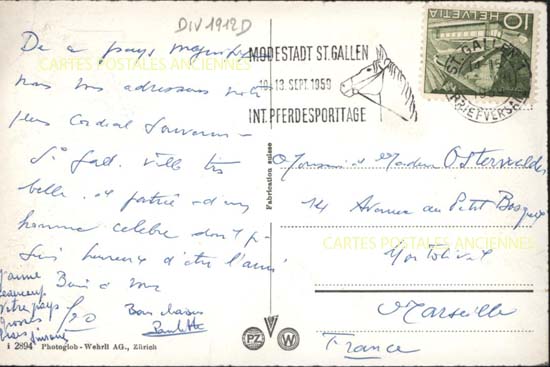 DIV 1912D
De ce pays magnifique
nous vous adressons notre
plus cordial Souvenir
St Gall. Ville très
belle, et patrie d'un
homme célèbre dont je
suis heureux d'être l'ami
Bons baisers
J'aime
beaucoup
votre pays
grosses
bises
CARTES POSTALES ANCIENNES
MODESTADT ST.GALLEN
10.-13. SEPT. 1959
INT. PFERDESPORTTAGE
10 HELVETIA
ST. GALLEN
BRIEFVERSAND
Fabrication suisse
Monsieur et Madame Ostervalder
14 Avenue du Petit Bosquet
CARTES POSTALES ANCIENNES
Marseille
France
PZ W
i 2894 Photoglob - Wehrli AG., Zürich